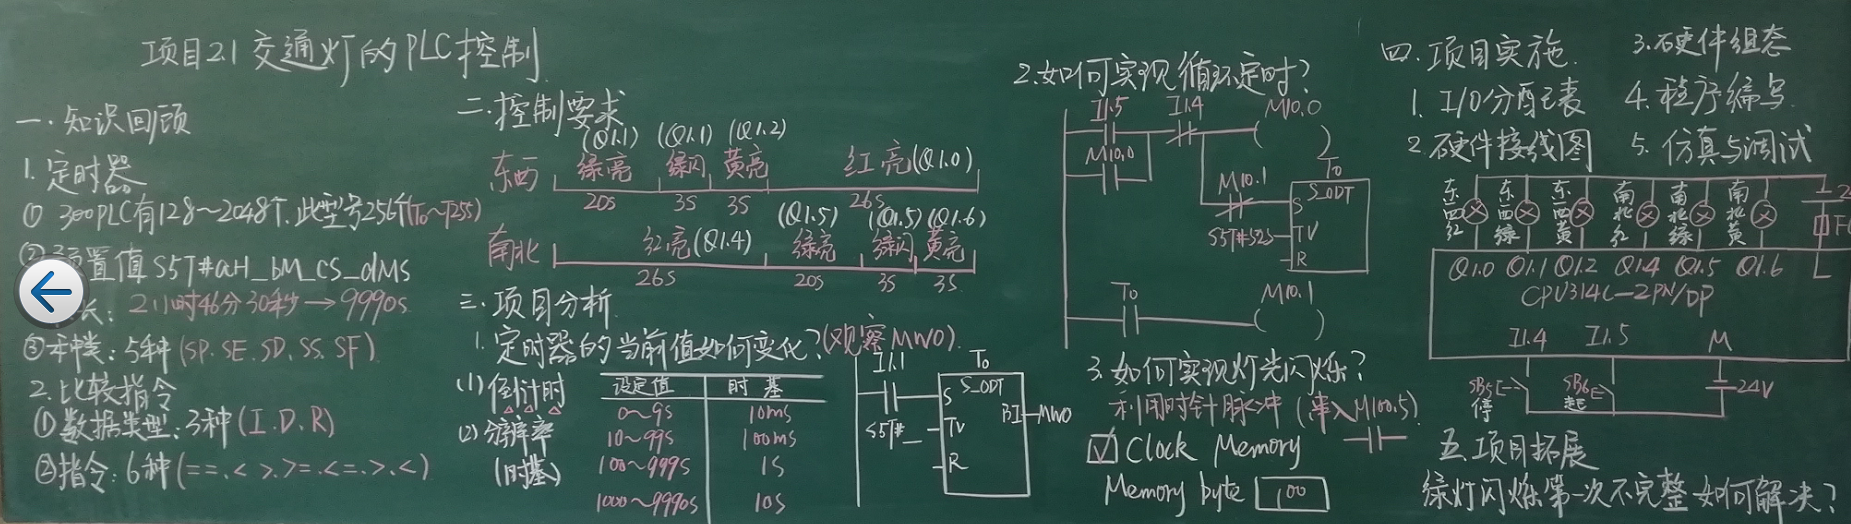 项目2.1 交通灯的PLC控制
一.知识回顾
1.定时器
① 300PLC有128~2048个.此型号256个(T0~T255)
预置值 S5T#aH_bM_cS_dMS
长: 2小时46分30秒→9990s
③种类:5种(SP.SE.SD.SS.SF)
2.比较指令
①数据类型:3种(I.D.R)
②指令:6种(==.<>.>=.<=.>.<)
二.控制要求
(Q1.1) (Q1.1) (Q1.2)
东西 绿亮 绿闪 黄亮 红亮(Q1.0)
20s 3s 3s 26s
(Q1.5) (Q1.5) (Q1.6)
南北 红亮(Q1.4) 绿亮 绿闪 黄亮
26s 20s 3s 3s
三.项目分析
1.定时器的当前值如何变化?(观察MW0)
(1)倒计时
(2)分辨率
(时基)
设定值 时基
0~9s 10ms
10~99s 100ms
100~999s 1s
1000~9990s 10s
I1.1 T0
S_ODT
S
S5T#_ TV BI MW0
R
2.如何实现循环定时?
I1.5 I1.4 M10.0
M10.0
T0
M10.1 S_ODT
S
S5T#52s TV
R
T0 M10.1
3.如何实现灯光闪烁?
利用时针脉冲(串入M100.5)
☑ Clock Memory
Memory byte 100
四.项目实施
1. I/O分配表
2.硬件接线图
3.硬件组态
4.程序编写
5.仿真与调试
东西红 东西绿 东西黄 南北红 南北绿 南北黄
Q1.0 Q1.1 Q1.2 Q1.4 Q1.5 Q1.6 L
CPU314C-2PN/DP
I1.4 I1.5 M
SB5 停 SB6 起 24V
五.项目拓展
绿灯闪烁第一次不完整如何解决?